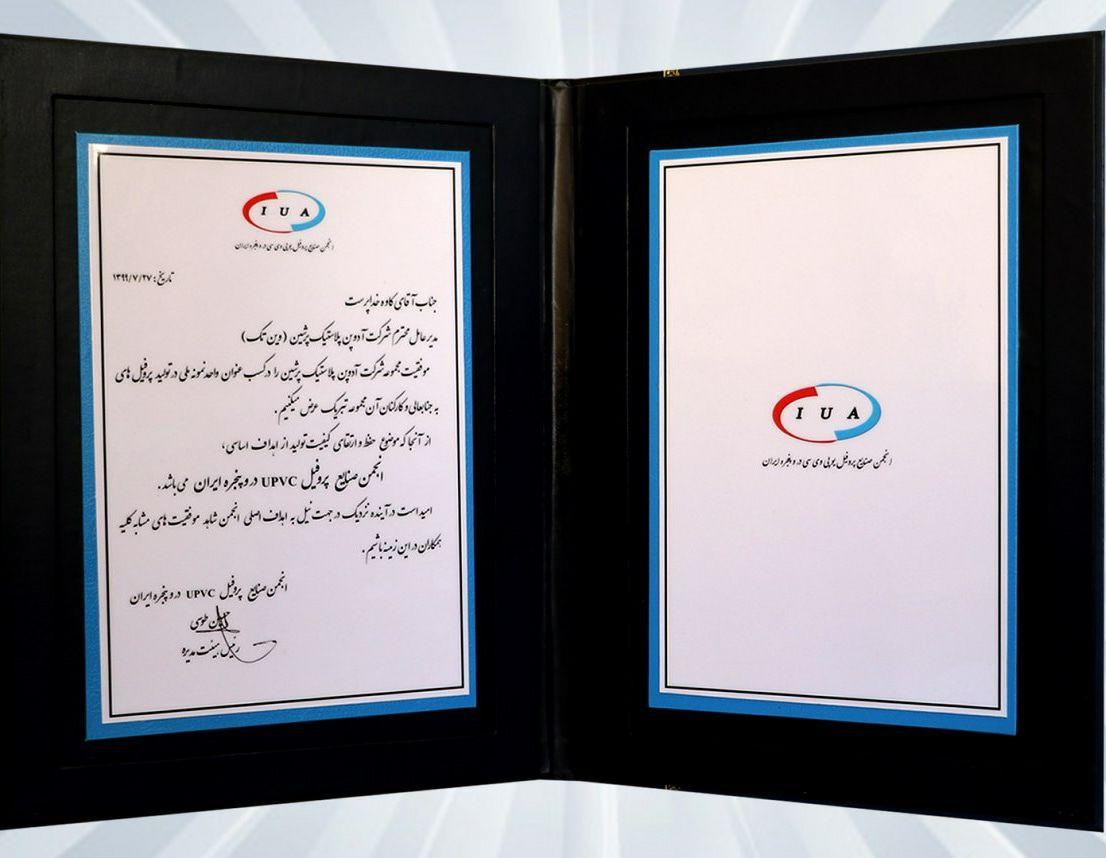 I U A
انجمن صنایع پروفیل یو پی وی سی در و پنجره ایران
تاریخ: ۱۳۹۹/۷/۲۷
جناب آقای کاوه خداپرست
مدیر عامل محترم شرکت آدوپن پلاستیک پرشین (وین تک)
موفقیت مجموعه شرکت آدوپن پلاستیک پرشین را در کسب عنوان واحد نمونه ملی در تولید پروفیل های
به جنابعالی و کارکنان آن مجموعه تبریک عرض میکنیم.
از آنجا که موضوع حفظ و ارتقای کیفیت تولید از اهداف اساسی،
انجمن صنایع پروفیل UPVC در و پنجره ایران می باشد.
امید است در آینده نزدیک در جهت نیل به اهداف اصلی انجمن شاهد موفقیت های مشابه کلیه
همکاران در این زمینه باشیم.
انجمن صنایع پروفیل UPVC در و پنجره ایران
طوسی
رئیس هیئت مدیره
I U A
انجمن صنایع پروفیل یو پی وی سی در و پنجره ایران